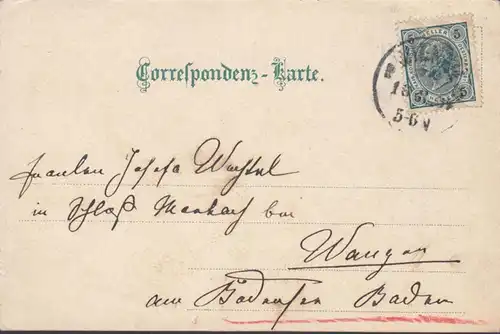 Correspondenz-Karte.
5 HELLER 5
5 5
18
5-6 N
Fräulein Josefa Wachtel
in Schloß Marbach bei
Wangen
am Bodensee Baden